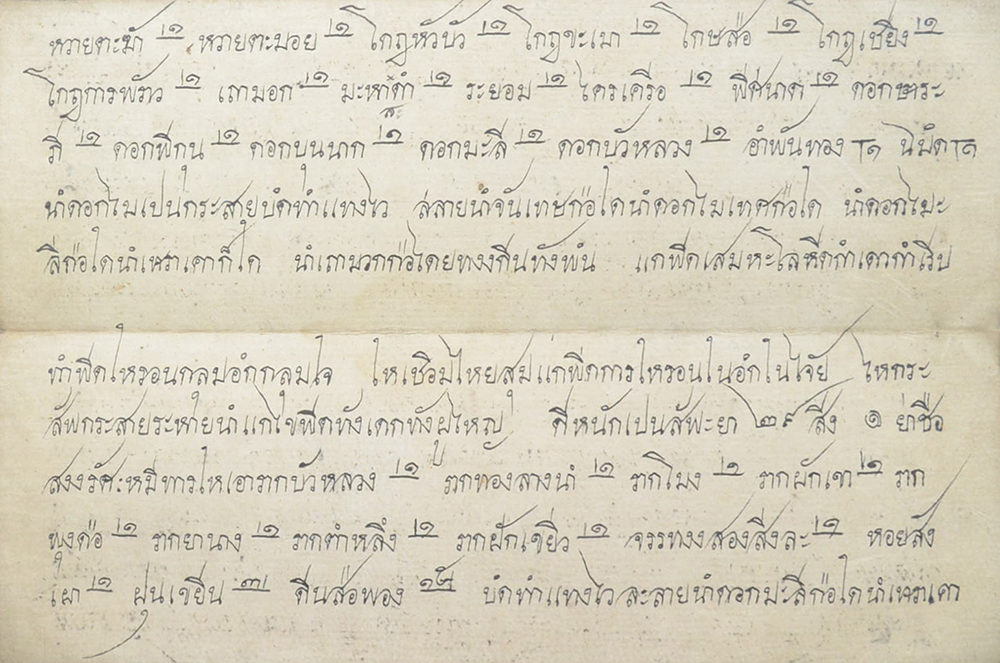 หวายตะม้า ๒ หวายตะมอย ๒ โกฎหัวบัว ๒ โกฎขะเมา ๒ โกษส่อ ๒ โกฎเชียง ๒
โกฎการพรัาว ๒ เถามอก ๒ มะหาดำ ๒ ระยอม ๒ ไครเครือ ๒ พีศนาด ๒ ดอกษาระ
ภี ๒ ดอกพีกุน ๒ ดอกบุนนาก ๒ ดอกมะลี ๒ ดอกบัวหลวง ๒ อำพันทอง
นำดอกไมเปนกระสายบดทำแทงไว ลลายนำจันเทษก่อได นำดอกไมเทศก่อได นำดอกไมะ
ลิก่อได นำเหราเคาก็ได แกพีดเสมหะโลหีดกำเดากำเรีบ
ทำพีดไหรอนกลุมอกกลุมใจ ไหเชือมไหยสุม แกพีดการไหรอนไนอกไนใจัย ไหกระ
สัพกระสายระหายนำ แกไขพีดทังเดกทังผู้ไหญ่ ตีหนักเปนสัพะยา ๒๙ สีง ๑ ยาชือ
สงงรัศะหมีทารไหเอารากบัวหลวง ๒ รากทองลางนำ ๒ รากโมง ๒ รากผักเขา ๒ ราก
พุงดอ ๒ รากยานาง ๒ รากตำหลึง ๒ รากผักเขยีว ๒ จรรทงงสองสีงละ ๒ หอยสัง
เผา ๒ ฝุนเจยีน ๓ ดีนส่อพอง บดทำแทงไวละลายนำดอกมะลิก่อได นำเหราเคา